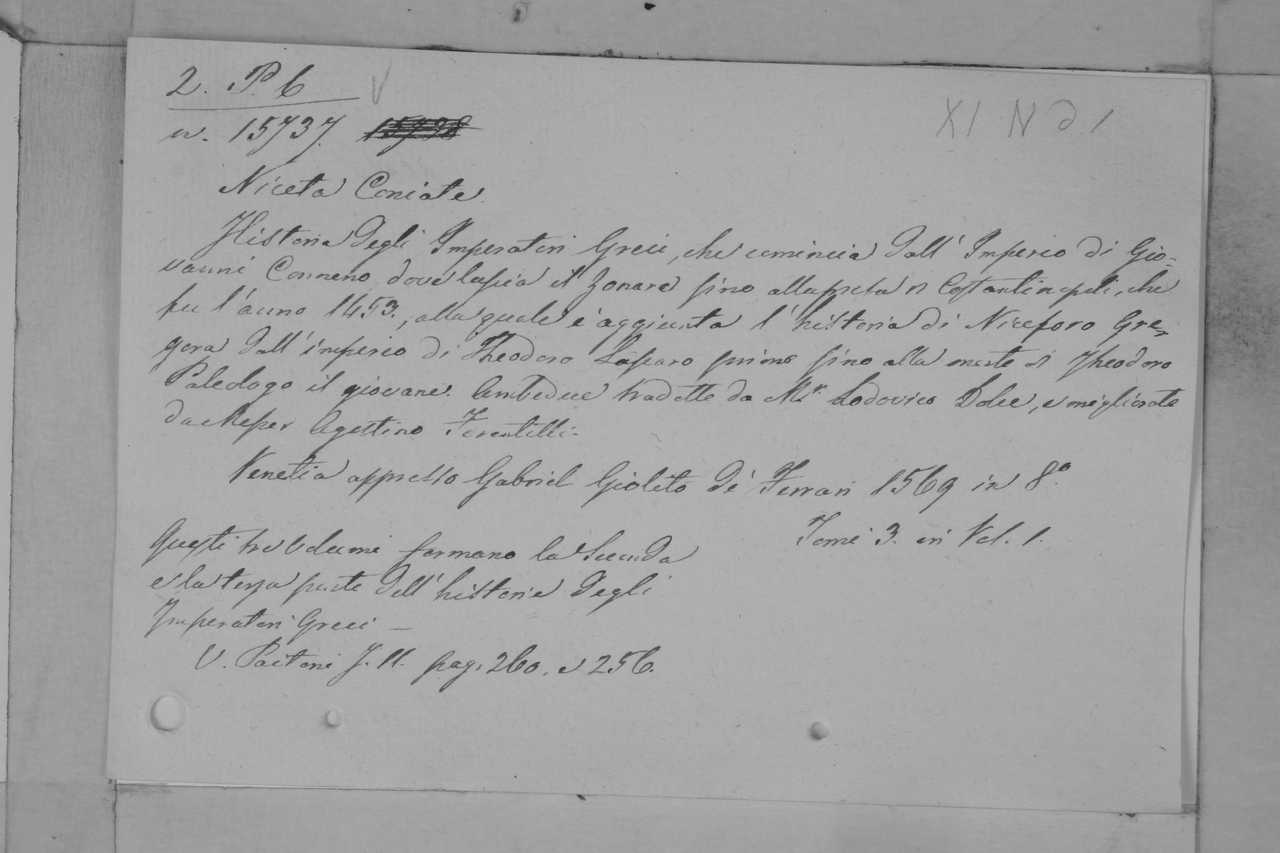 2. P. 6 V
XI N ∂ 1
n. 15737. 15738
Niceta Coniate.
Historia degli Imperatori Greci, che comincia dall' Imperio di Gio-
vanni Comneno, dove lassia il Zonara fino alla presa di Costantinopoli, che
fu l'anno 1453., alla quale è aggiunta l'historia di Niceforo Gre-
gora dall'imperio di Theodoro Lasparo primo fino alla morte di Theodoro
Paleologo il giovane. Ambedue tradotte da Mr. Lodovico Dolce, e migliorate
da Messer Agostino Ferentilli.
Venetia appresso Gabriel Gioleto de' Ferrari 1569 in 8.°
Tomi 3. in Vol. 1.
Questi tre volumi formano la Seconda
e la terza parte dell'historia degli
Imperatori Greci —
V. Paitoni T. II. pag. 260. e 256.